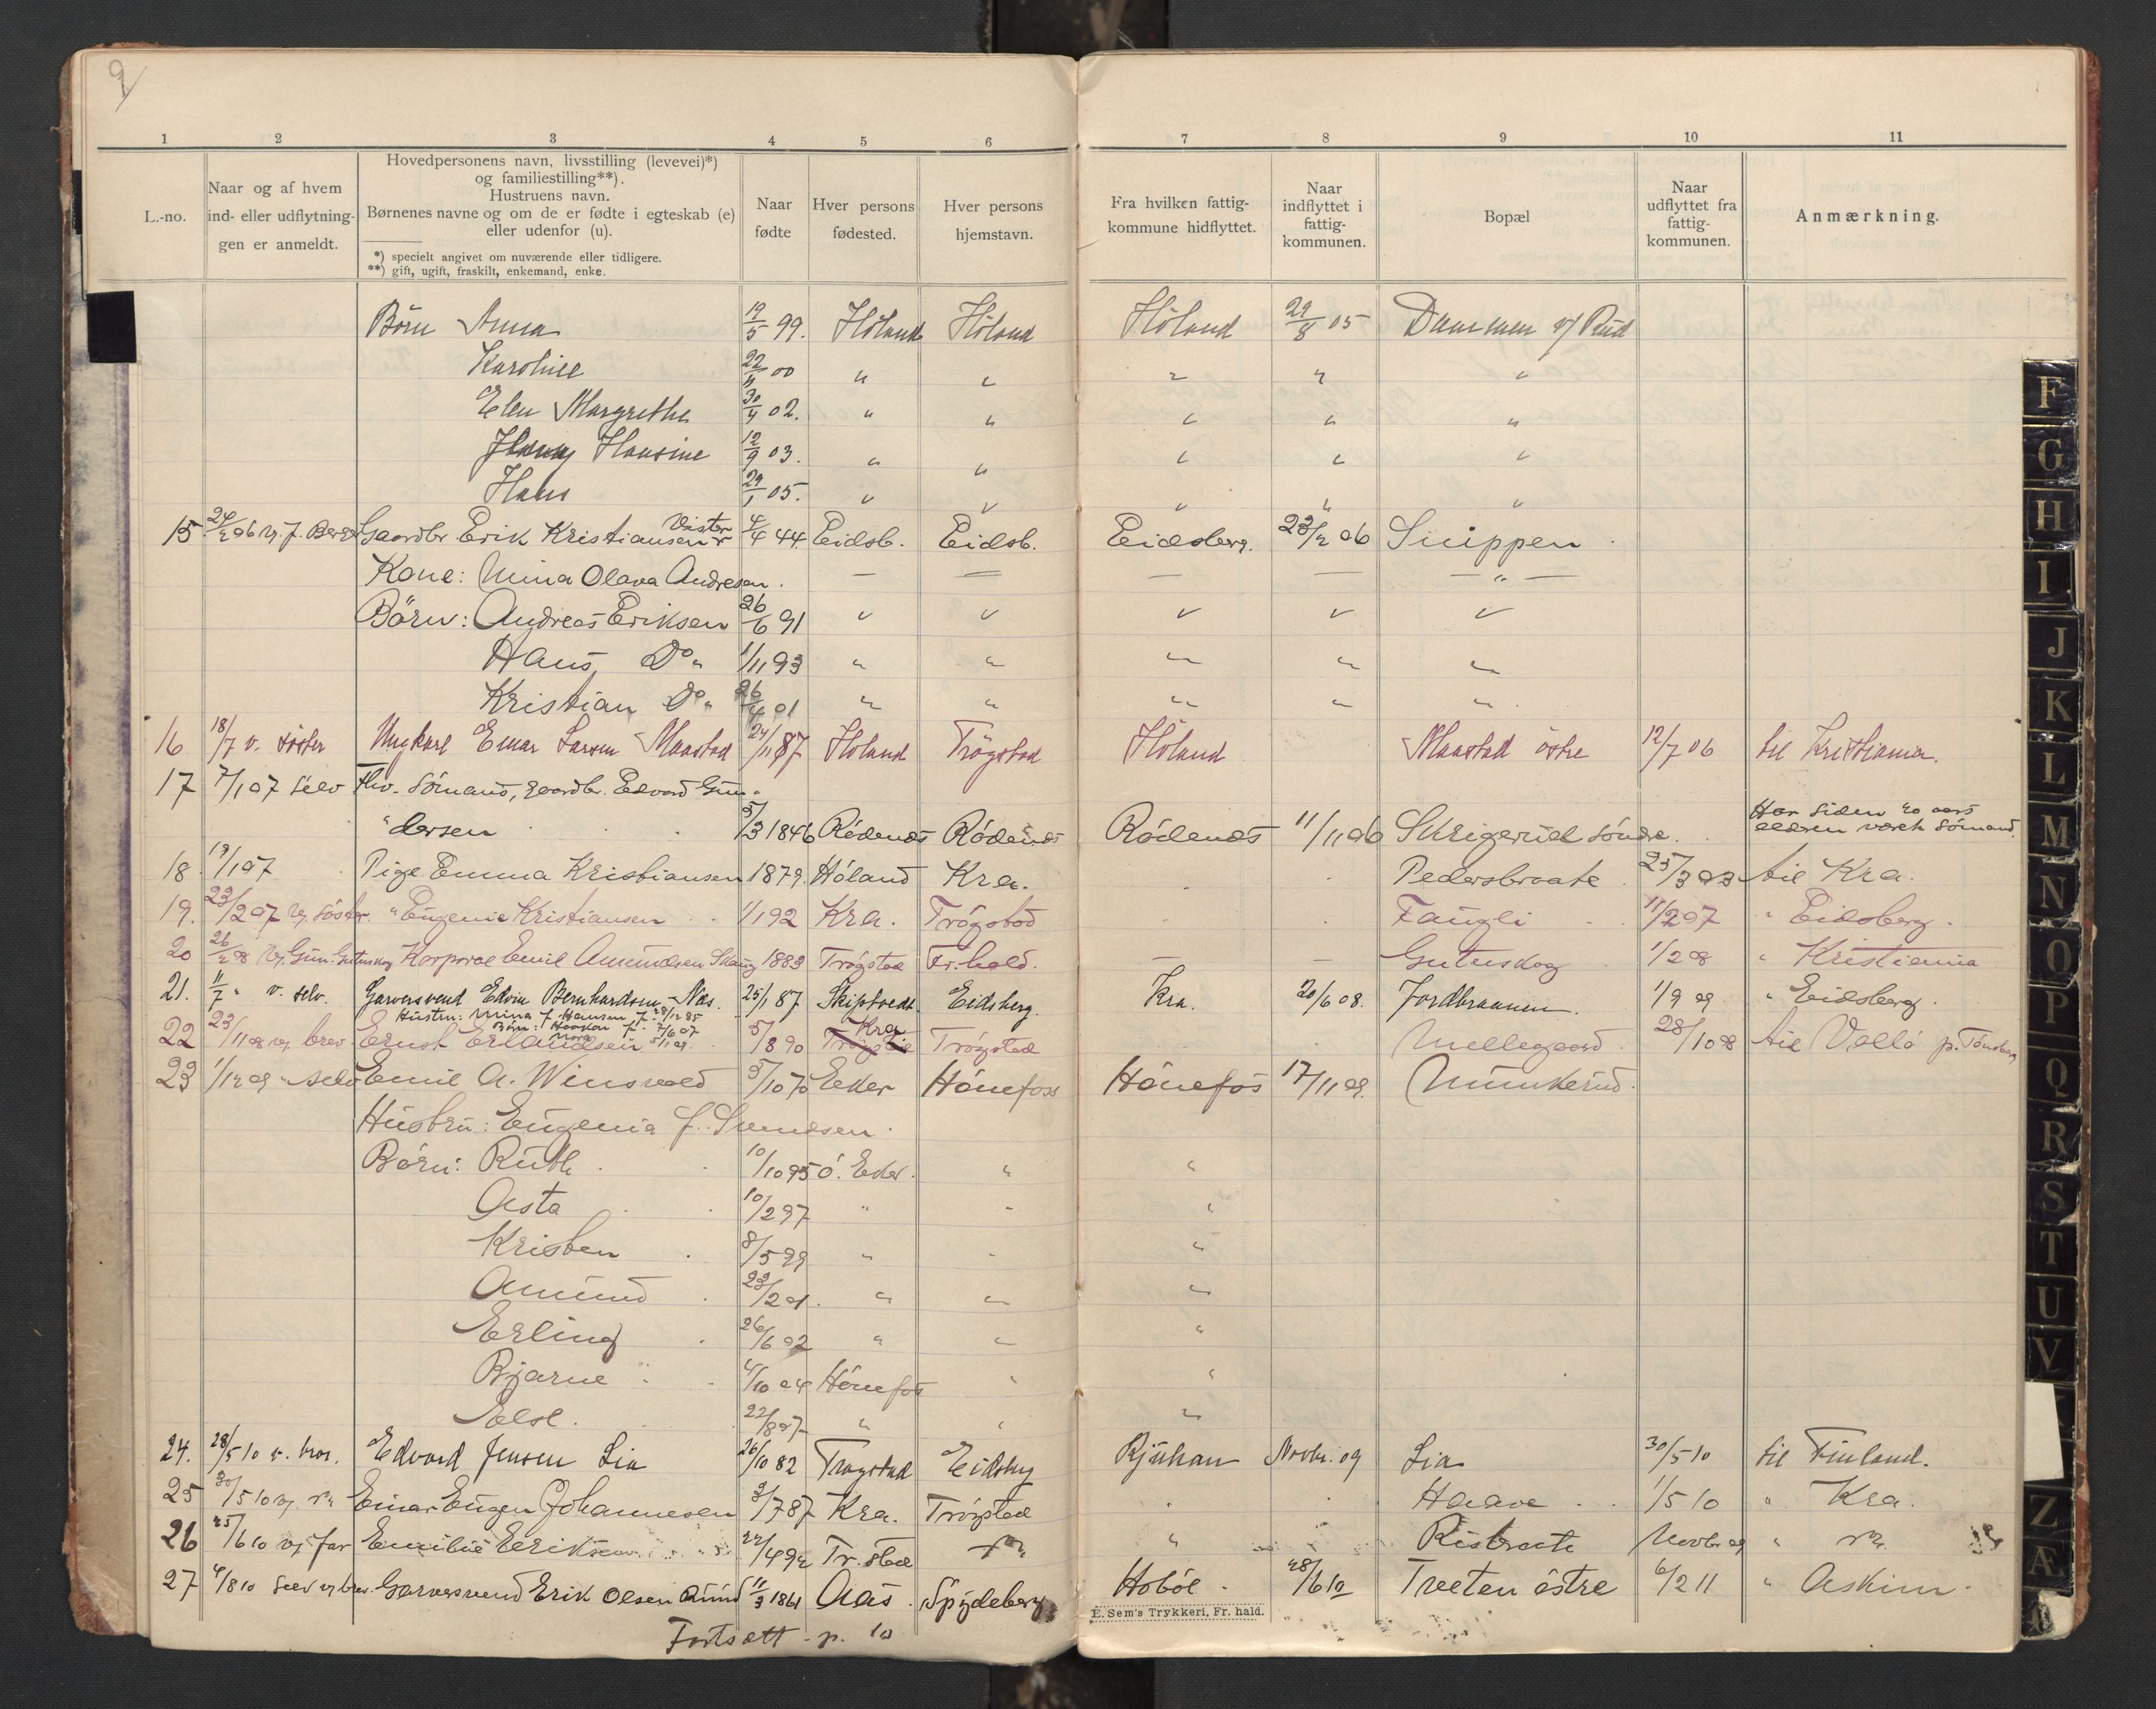 9
1 2 3 4 5 6 7 8 9 10 11
L.-no.
Naar og af hvem
ind- eller udflytnin-
gen er anmeldt.
Hovedpersonens navn, livsstilling (levevei)*)
og familiestilling**).
Hustruens navn.
Børnenes navne og om de er fødte i egteskab (e)
eller udenfor (u).
*) specielt angivet om nuværende eller tidligere.
**) gift, ugift, fraskilt, enkemand, enke.
Naar
fødte
Hver persons
fødested.
Hver persons
hjemstavn.
Fra hvilken fattig-
kommune hidflyttet.
Naar
indflyttet i
fattig-
kommunen.
Bopæl
Naar
udflyttet fra
fattig-
kommunen.
Anmærkning.
Börn Anna 19/5 99. Höland Höland Höland 29/8 05 Dammen v/ Rud
Karoline 22/11 00 " " " " "
Elen Margrethe 30/4 02. " " " " "
Hansine 12/9 03. " " " " "
Hans 29/1 05. " " " " "
15 24/2 06 v. J. Berger Gaardbr Erik Kristiansen Vister 4/4 44 Eidsb. Eidsb. Eidsberg. 23/2 06 Snippen
Kone: Mina Olava Andresen. — — — — — " —
Börn: Andreas Eriksen 26/6 91 " " " " "
Hans Do " 1/11 93 " " " " "
Kristian Do " 26/4 01 " " " " "
16 18/7 v. söster Ungkarl Einar Larsen Maastad 24/11 87 Höland Trögstad Höland Maastad östre 12/7 06 til Kristiania.
17 7/1 07 selv Fhv. Sömand, gaardbr. Edvard Gun-
"dersen 5/3 1846 Rödenæs Rödenæs Rödenæs 11/11 06 Skrigerud söndre. Har siden 20 aars
alderen været Sömand.
18 19/1 07 Pige Emma Kristiansen 1879. Höland Kra. Pedersbraate 25/3 03 til Kra.
19. 23/2 07 v. söster " Eugenie Kristiansen 1/1 92 Kra. Trögstad Faugli 11/2 07 " Eidsberg.
20 26/2 08 v. Gun. Gutuskog Korporal Emil Amundsen Skaug 1883 Trögstad Fr.hald. — — Gutuskog 1/2 08 " Kristiania
21. 11/7 " v. selv. Garversvend Edvin Bernhardsen Næs. 25/1 87 Skiptvedt Eidsberg. Kra. 20/6 08. Jordbraanen. 1/9 09 " Eidsberg.
Hustru: Mina J. Hansen f. 28/12 85
Börn: Haakon f. 7/6 07
Nora 5/11 09
22 23/11 08 v. brev. Ernst Erlandsen 5/8 90 Trögstad Kra Trögstad Mellegaard 28/10 08 til Vallö p. Tönsberg
23 1/12 09 " selv Emil A. Winsvold 5/10 70 Eker Hönefoss Hönefos 17/11 09. Munkerud.
Hustru: Eugenia f. Svendsen.
Börn: Ruth 10/10 95 ö. Eker. " "
Asta 10/2 97 " " "
Kristen 8/5 99 " " "
Amund 23/2 01. " " "
Erling 26/6 02 " " "
Bjarne 4/10 04 Hönefos " "
Else. 22/8 07 " " "
24. 28/5 10 v. bror. Edvard Jensen Lia 26/10 82 Trøgstad Eidsbg Rjukan Novbr. 09 Lia 30/5 10 til Finland.
25 30/5 10 v. Einar Eugen Johannesen 3/7 87 Kra. Trögstad Haave 1/5 10 " Kra.
26 25/6 10 v/ far Emilie Eriksen 24/4 92 Tr.stad " Ristraate Novbr 09 "
27 4/8 10 selv v/ brev. Garversvend Erik Olsen Rund 11/3 1861 Aas. Spydeberg Hobøl. 28/6 10 Tveten östre 6/2 11 " Askim.
E. Sem's Trykkeri, Fr. hald.
Fortsætt. p. 10
F
G
H
I
J
K
L
M
N
O
P
Q
R
S
T
U
V
Z
Æ